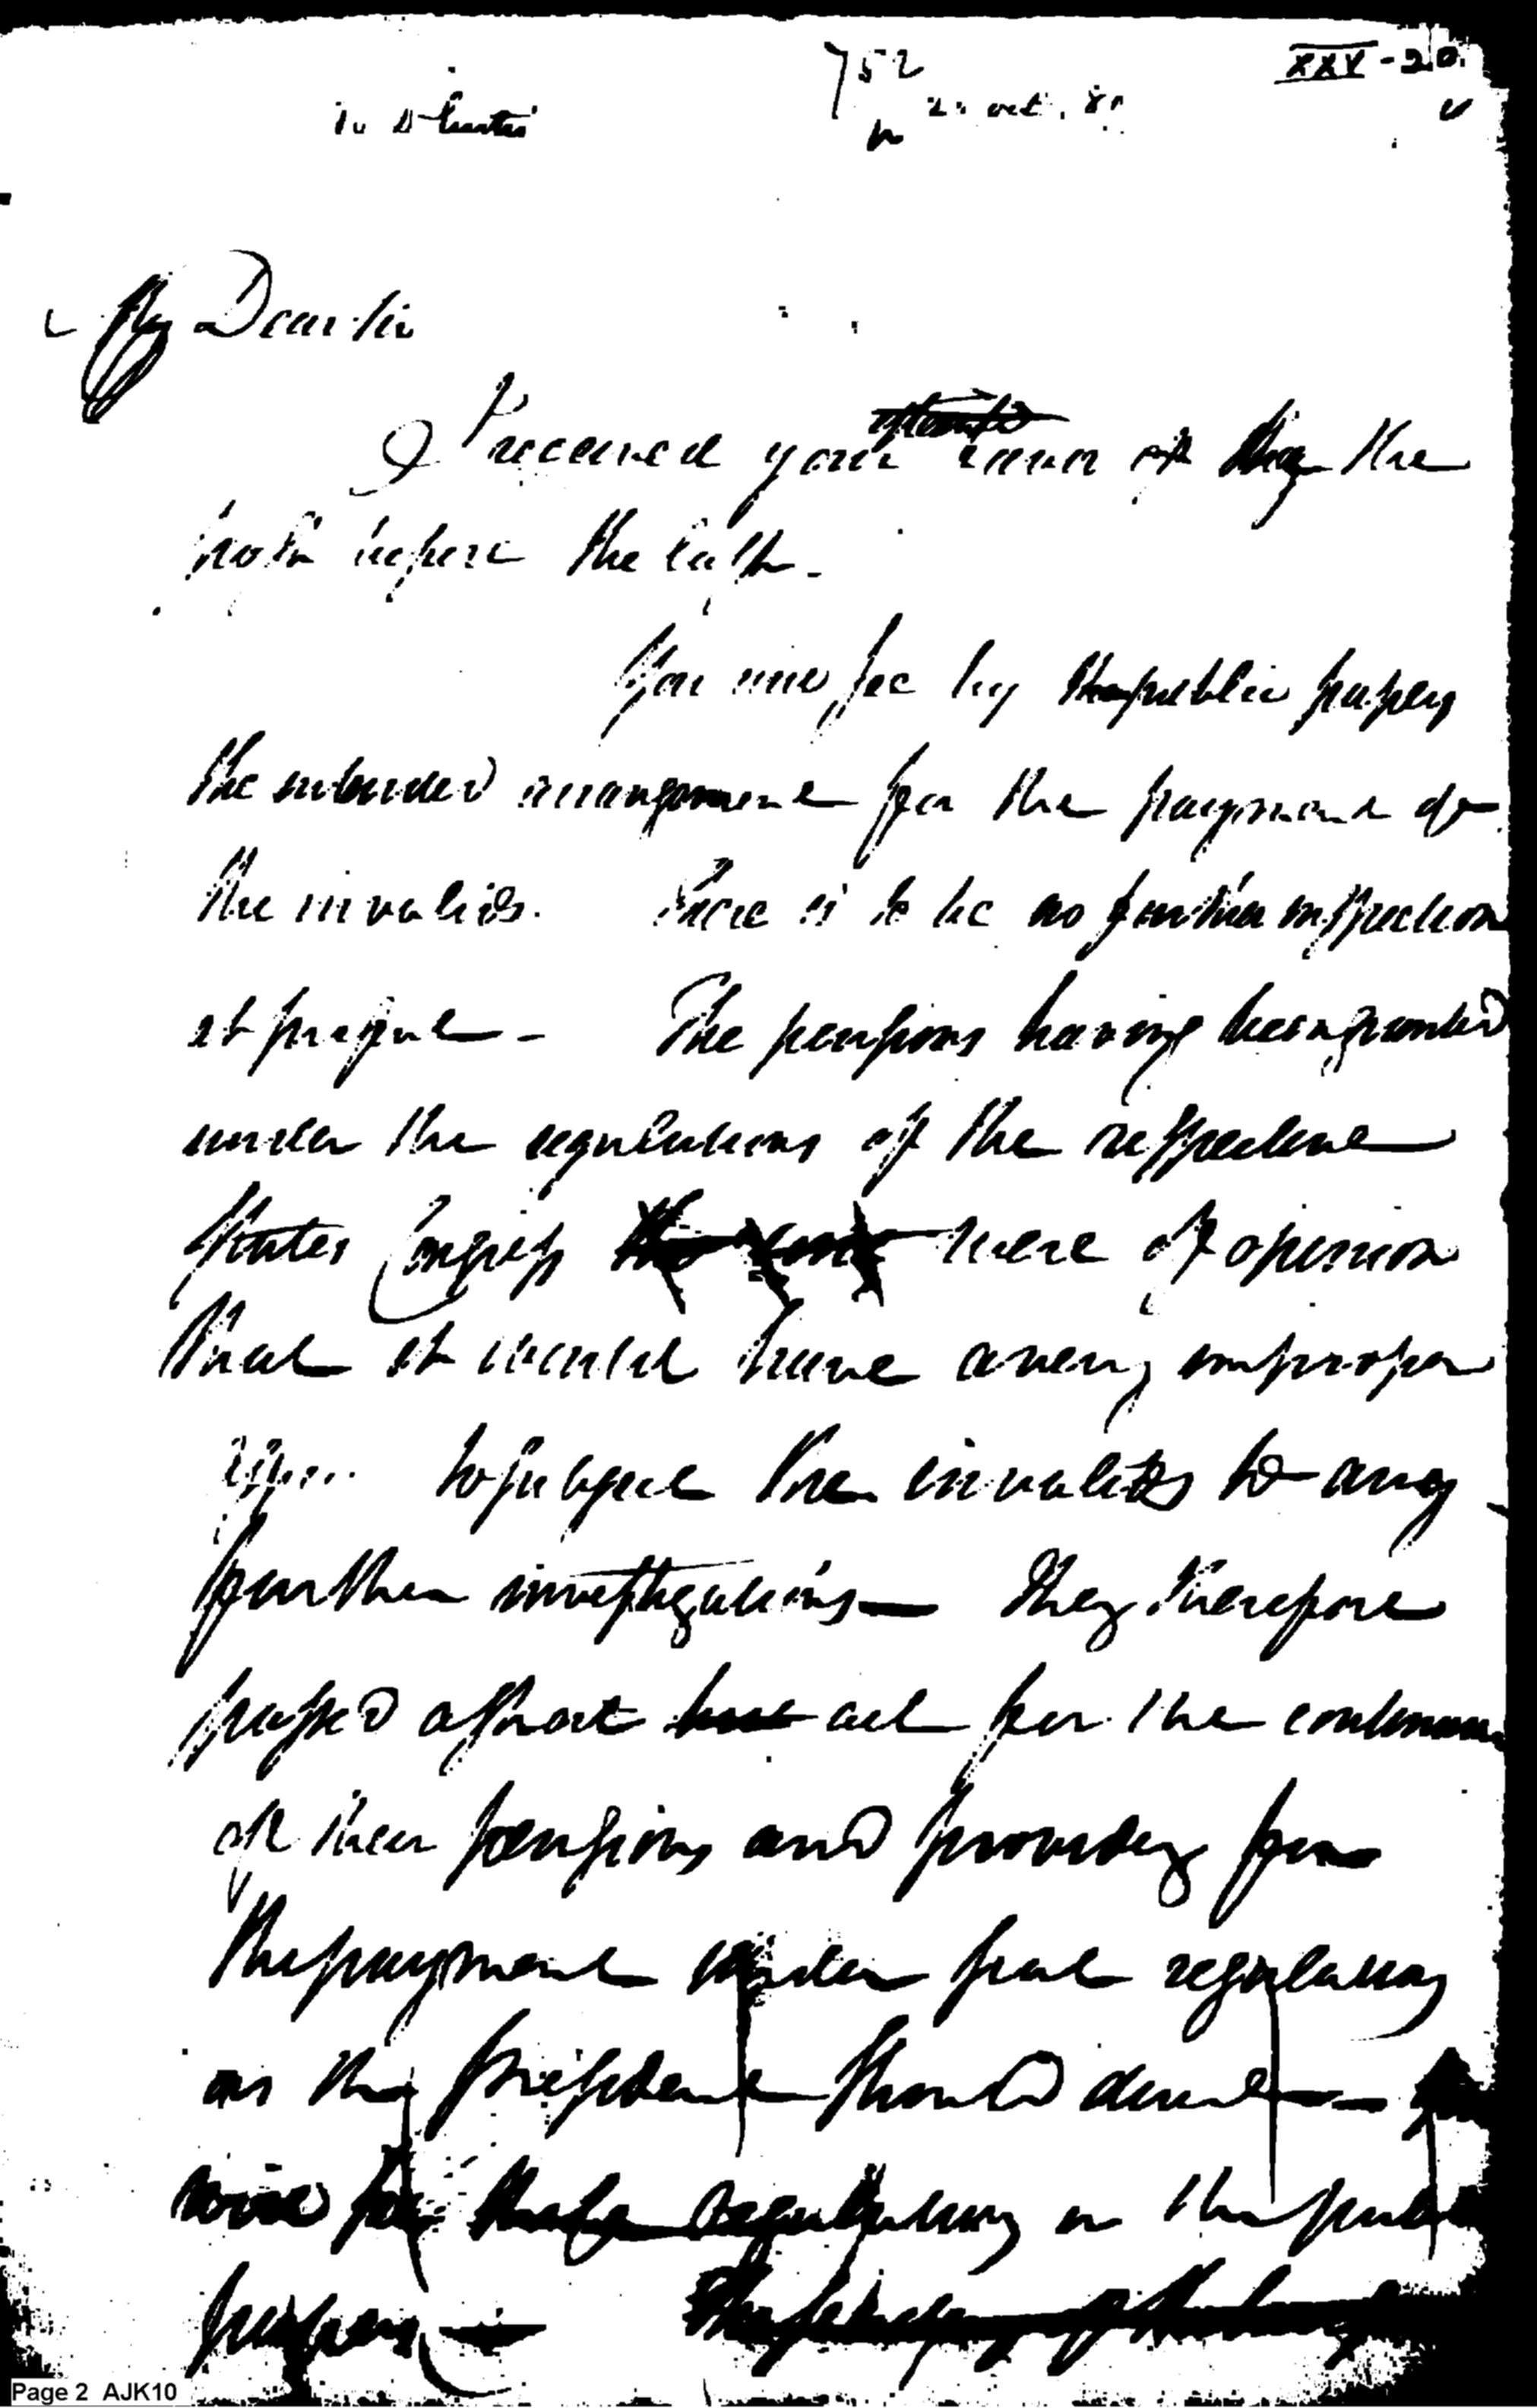 752
XXV-20
Oct. 
My Dear Sir
I received your favor of the
post before the last.
You will see by the public papers
the intended arrangement for the payment of
the invalids. There is to be no further inspection
at present - The pensions having been granted
under the regulations of the respective
States Congress were of opinion
that it would have a very improper
to subject the invalids to any
further investigations — They therefore
passed a short act for the continuance
of their pensions and providing for
the payment under such regulations
as the President should direct —
see these regulations in the public
papers —
Page 2 AJK10